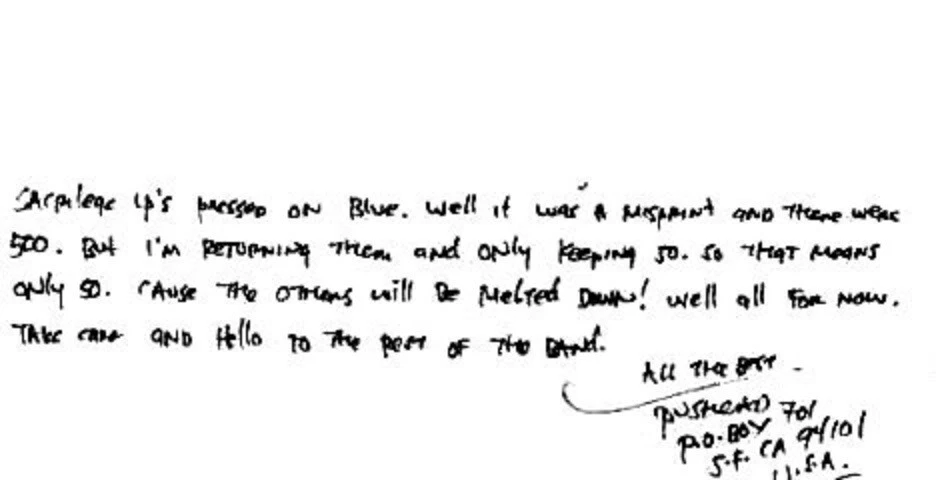 Sacrilege LP's pressed on Blue. Well it was a misprint and there were
500. But I'm returning them and only keeping 50. So that means
only 50. 'Cause the others will be melted down! Well all for now.
Take care and Hello to the rest of the band.
All the best.
Pushead
P.O. Box 701
S.F. CA 94101
U.S.A.